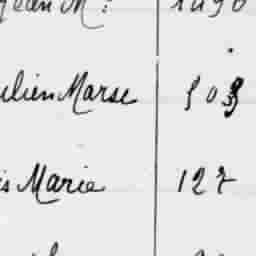 Jean M.
ulien Marse 503
is Marie 127